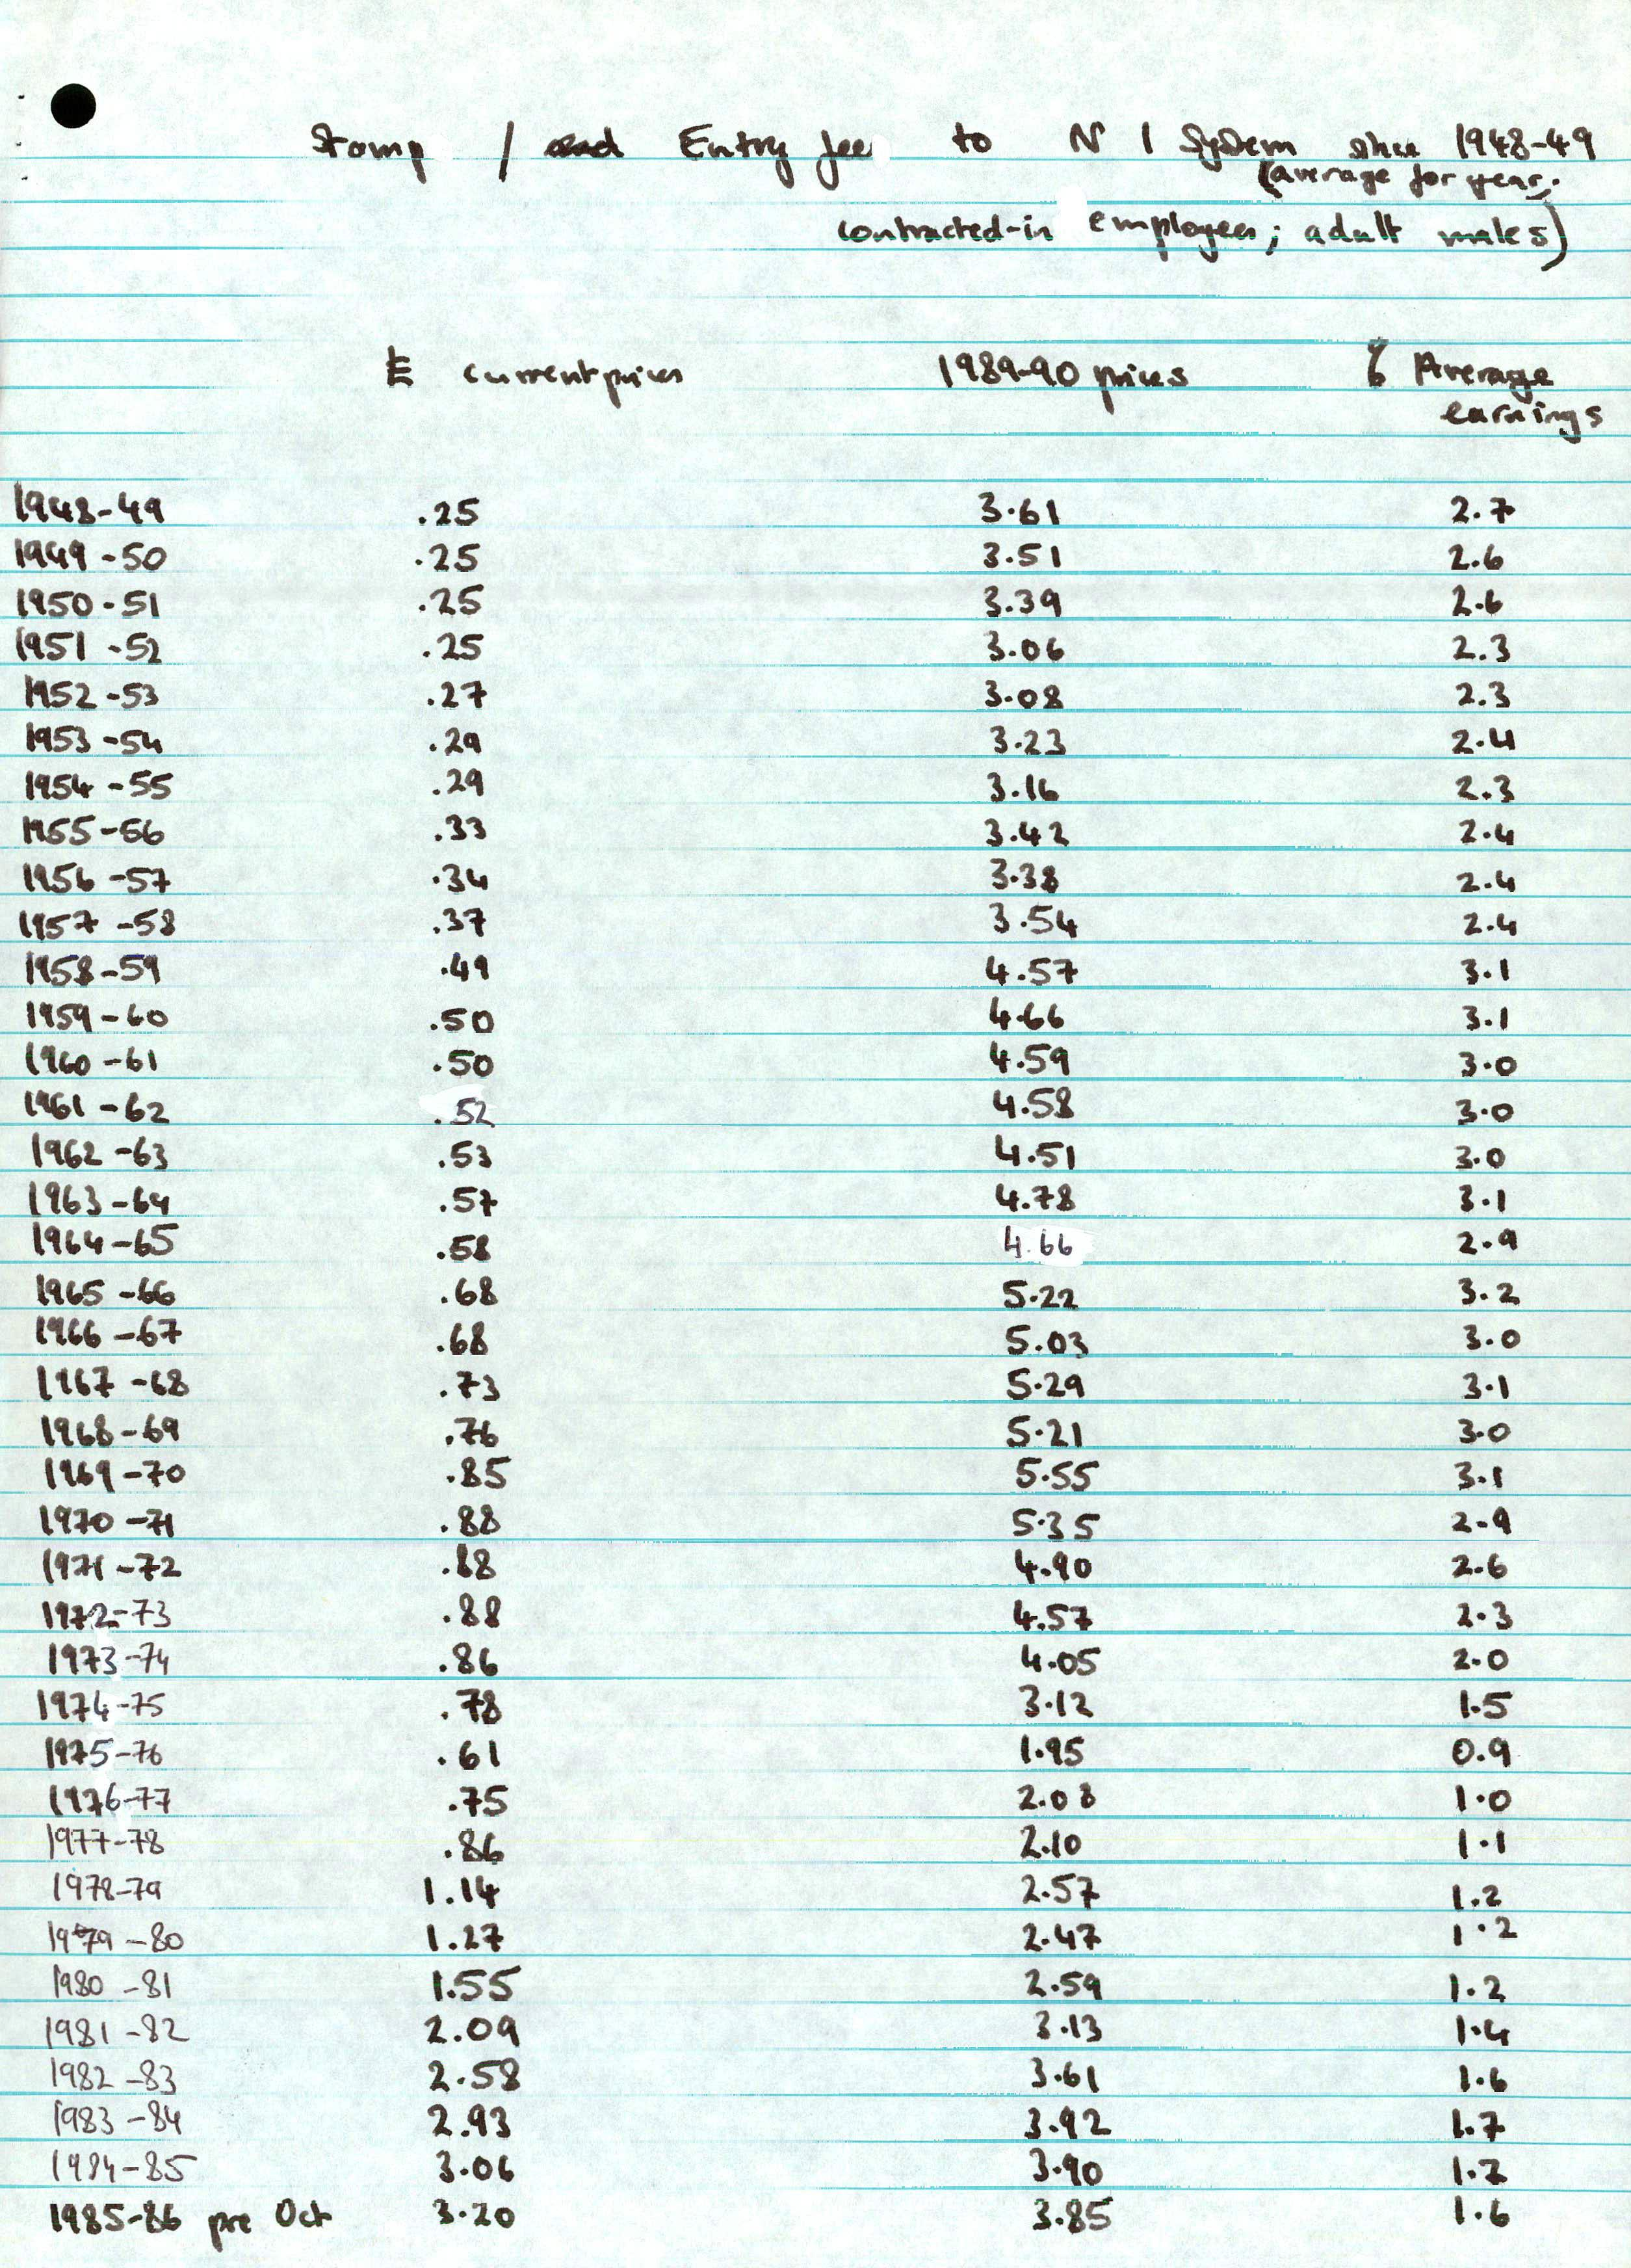 Stamp / and Entry fee to N I System since 1948-49
(average for year;
contracted-in employees; adult males)
£ current prices 1989-90 prices % Average
earnings
1948-49 .25 3.61 2.7
1949-50 .25 3.51 2.6
1950-51 .25 3.39 2.6
1951-52 .25 3.06 2.3
1952-53 .27 3.08 2.3
1953-54 .29 3.23 2.4
1954-55 .29 3.16 2.3
1955-56 .33 3.42 2.4
1956-57 .34 3.38 2.4
1957-58 .37 3.54 2.4
1958-59 .49 4.57 3.1
1959-60 .50 4.66 3.1
1960-61 .50 4.59 3.0
1961-62 .52 4.58 3.0
1962-63 .53 4.51 3.0
1963-64 .57 4.78 3.1
1964-65 .58 4.66 2.9
1965-66 .68 5.22 3.2
1966-67 .68 5.03 3.0
1967-68 .73 5.29 3.1
1968-69 .76 5.21 3.0
1969-70 .85 5.55 3.1
1970-71 .88 5.35 2.9
1971-72 .88 4.90 2.6
1972-73 .88 4.57 2.3
1973-74 .86 4.05 2.0
1974-75 .78 3.12 1.5
1975-76 .61 1.95 0.9
1976-77 .75 2.08 1.0
1977-78 .86 2.10 1.1
1978-79 1.14 2.57 1.2
1979-80 1.27 2.47 1.2
1980-81 1.55 2.59 1.2
1981-82 2.09 3.13 1.4
1982-83 2.58 3.61 1.6
1983-84 2.93 3.92 1.7
1984-85 3.06 3.90 1.7
1985-86 pre Oct 3.20 3.85 1.6